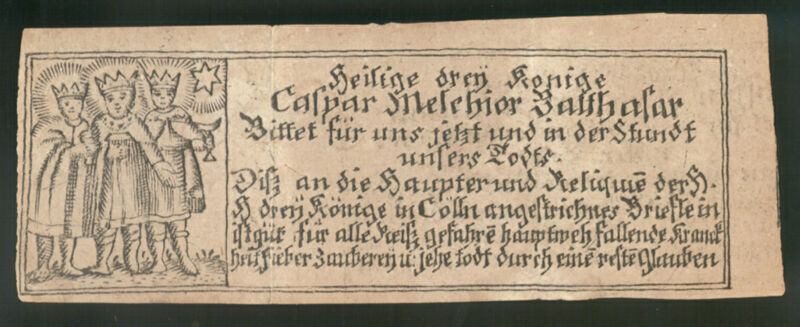 Heilige dreÿ Konige
Caspar Melchior Balthasar
Bittet für uns jetzt und in der Stundt
unsers Todts.
Diß an die Haupter und Reliquiē der H.
H dreÿ Könige in Cölln angestrichnes Briefle in
ist gut für alle Reiß gefahrē hauptweh fallende Kranck
heit fieber Zauberey u: jehe todt durch einē veste Glauben